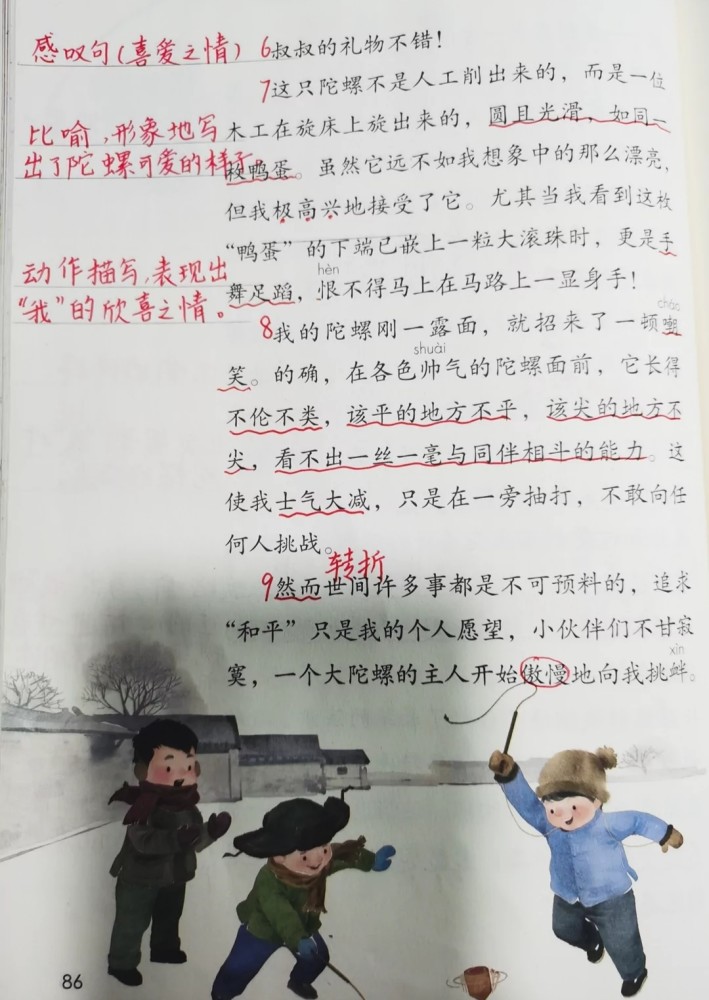 感叹句(喜爱之情) 6叔叔的礼物不错！
7这只陀螺不是人工削出来的，而是一位
木工在旋床上旋出来的，圆且光滑，如同一
比喻,形象地写
出了陀螺可爱的样子。
枚鸭蛋。虽然它远不如我想象中的那么漂亮，
但我极高兴地接受了它。尤其当我看到这枚
“鸭蛋”的下端已嵌上一粒大滚珠时，更是手
动作描写,表现出
“我”的欣喜之情。
hèn
舞足蹈，恨不得马上在马路上一显身手！
cháo
8我的陀螺刚一露面，就招来了一顿嘲
shuài
笑。的确，在各色帅气的陀螺面前，它长得
不伦不类，该平的地方不平，该尖的地方不
尖，看不出一丝一毫与同伴相斗的能力。这
使我士气大减，只是在一旁抽打，不敢向任
何人挑战。
转折
9然而世间许多事都是不可预料的，追求
“和平”只是我的个人愿望，小伙伴们不甘寂
xìn
寞，一个大陀螺的主人开始傲慢地向我挑衅。
86